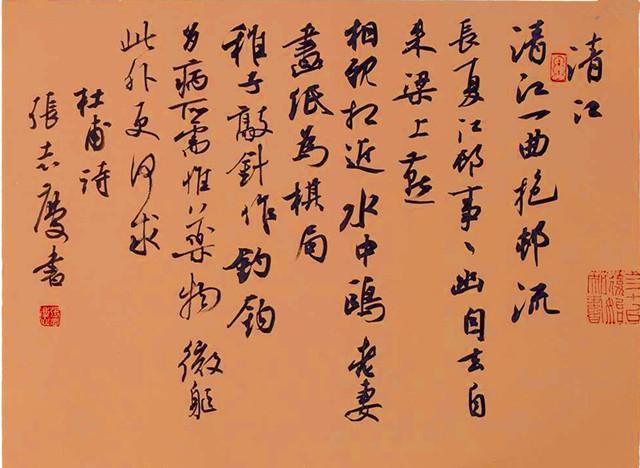 清江
清江一曲抱邨流
長夏江邨事〻幽自去自
来梁上燕
相親相近水中鷗老妻
畫紙為棋局
稚子敲針作釣鉤
多病所需惟藥物微軀
此外更何求
杜甫詩
張志慶書